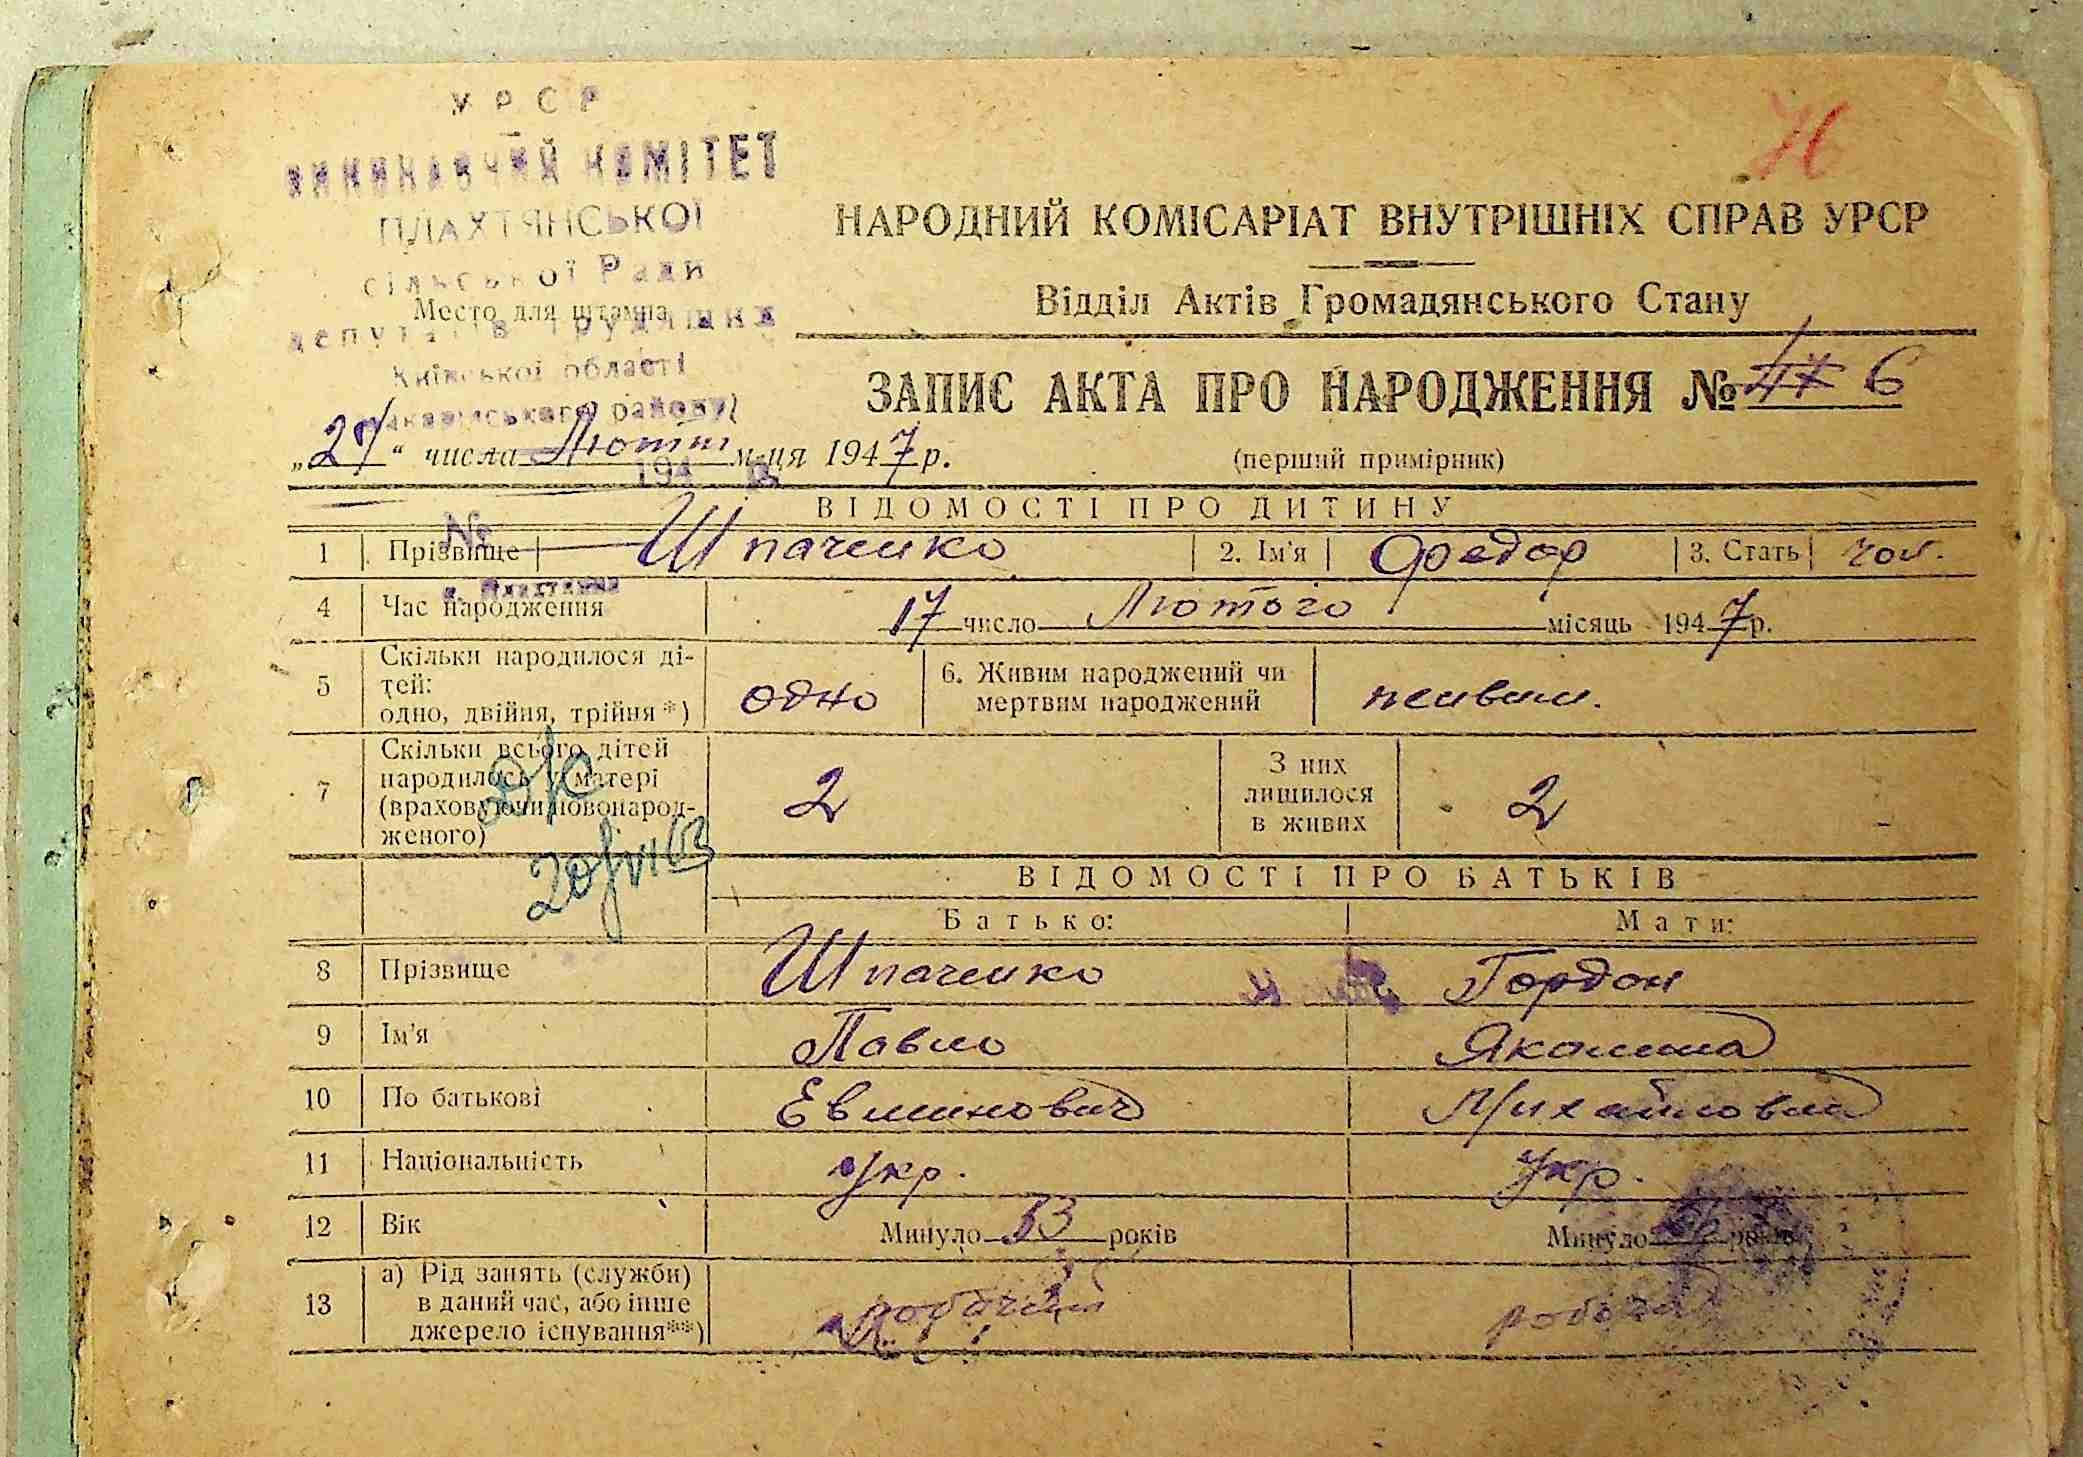 У Р С Р
ВИКОНАВЧИЙ КОМІТЕТ
ПЛАХТЯНСЬКОЇ
сільської Ради
Место для штампа
депутатів трудящих
Київської області
Макарівського району
194 р.
№
с. Плахтянка
76
НАРОДНИЙ КОМІСАРІАТ ВНУТРІШНІХ СПРАВ УРСР
Відділ Актів Громадянського Стану
ЗАПИС АКТА ПРО НАРОДЖЕННЯ № 6
„27“ числа Лютий м-ця 1947 р.
(перший примірник)
ВІДОМОСТІ ПРО ДИТИНУ
1 Прізвище Шпаченко 2. Ім'я Федор 3. Стать чол.
4 Час народження 17 число Лютого місяць 1947 р.
5 Скільки народилося ді-
тей:
одно, двійня, трійня*) одно 6. Живим народжений чи
мертвим народжений живим.
7 Скільки всього дітей
народилось у матері
(враховуючи новонарод-
женого) 2 З них
лишилося
в живих 2
ВІДОМОСТІ ПРО БАТЬКІВ
Батько: Мати:
8 Прізвище Шпаченко Гордон
9 Ім'я Павло Яколина
10 По батькові Евминович Михайловна
11 Національність Укр. Укр.
12 Вік Минуло 33 років Минуло років
13 а) Рід занять (служби)
в даний час, або інше
джерело існування**) робочий робоча